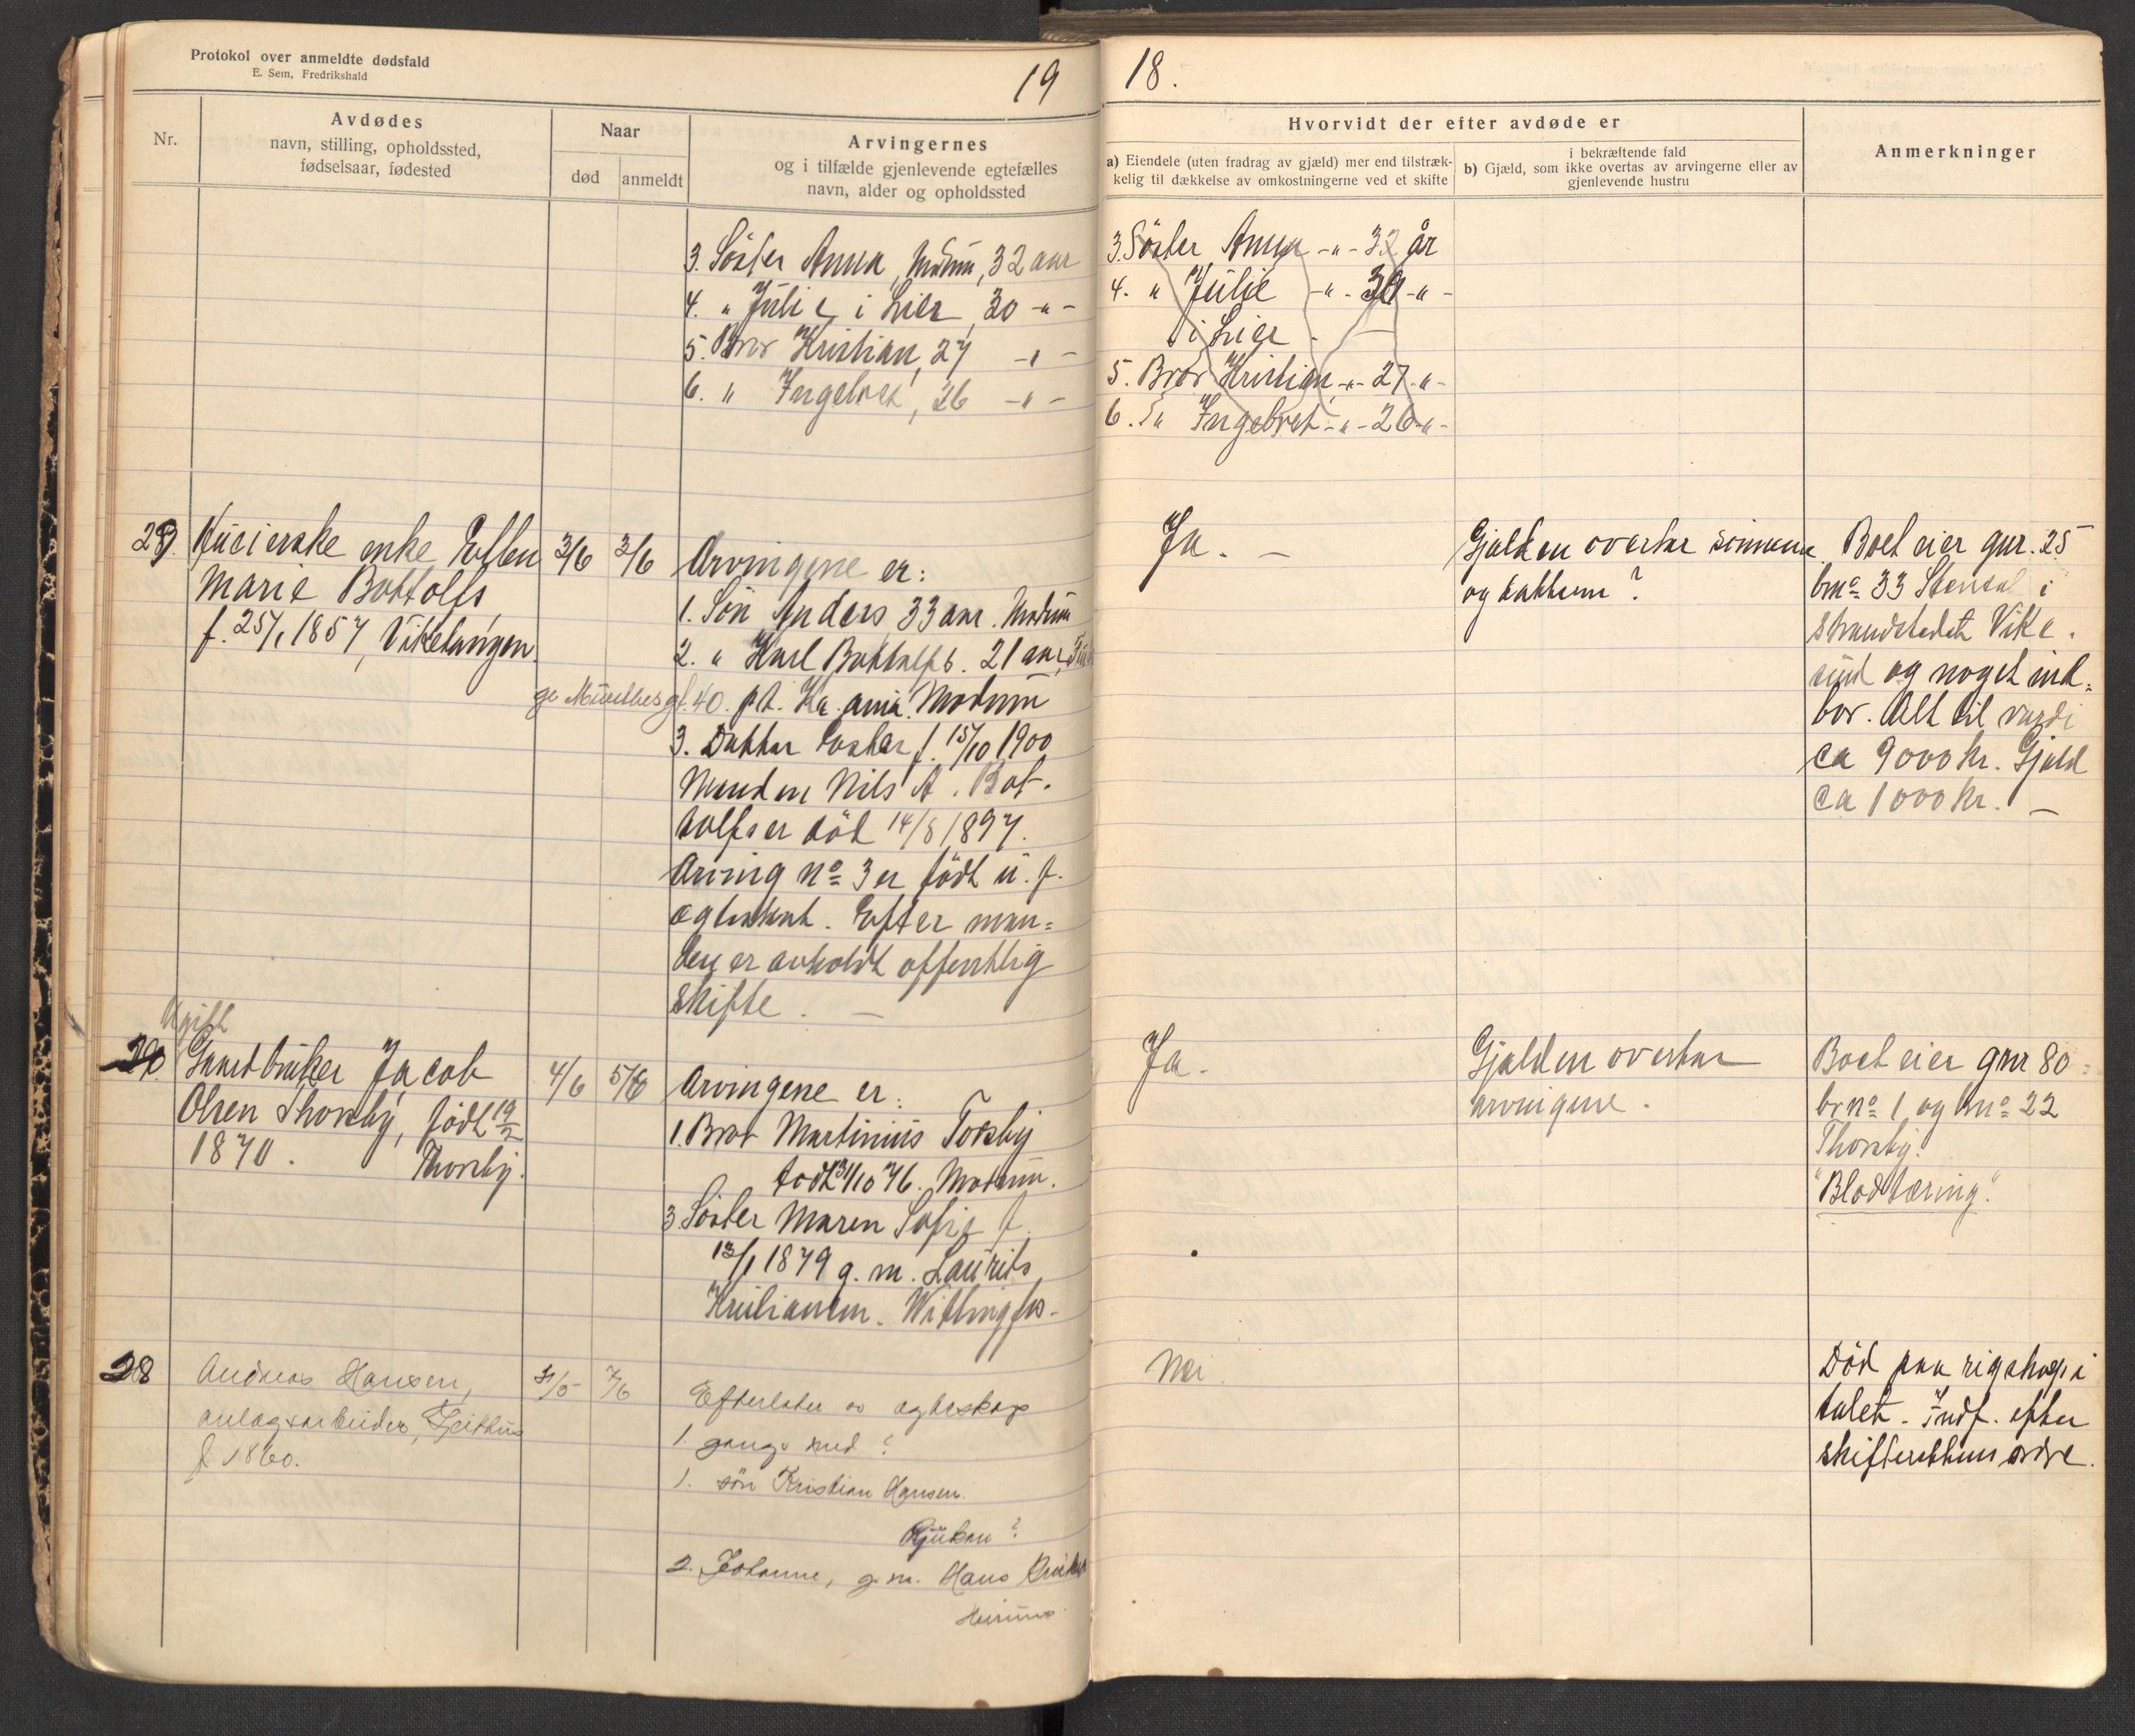 Protokol over anmeldte dødsfald
E. Sem, Fredrikshald
19
Nr.
Avdødes
navn, stilling, opholdssted,
fødselsaar, fødested
Naar
død
anmeldt
Arvingernes
og i tilfælde gjenlevende egtefælles
navn, alder og opholdssted
3. Söster Anna, Modum, 32 aar
4. " Julie i Lier, 30 -"-
5. Bror Kristian, 27 -"-
6. " Ingebret, 26 -"-
29. enke Ellen
Marie Bottolfs
f. 25/1 1857, Vikesangen.
3/6 3/6
Arvingene er:
1. Sön Anders 33 aar. Modum
2. " Karl Bottolfs. 21 aar,
gt. 40. pt. Kr.ania. Modum
3. Datter Ester f. 15/10 1900
Manden Nils A. Bot-
tolfs er död 14/8 1897.
Arving no 3 er födt u. f.
egteskat. Efter man-
den er avholdt offentlig
skifte. –
Ugift
Gaardbruker Jacob
Olsen Thorsby, födt 19/2
1870. Thorsby.
4/6 5/6
Arvingene er:
1. Bror Martinius Torsby
födt 31/10 76. Modum.
3 Söster Maren Sofie f.
13/1 1879 g. m. Laurits
Kristiansen. Wittingfos-
28
Andreas Hansen,
anlægsarbeider, Geithus
f. 1860.
31/5 7/6
Efterlater av egteskap
1. gang med?
1. sön Kristian Hansen.
Rjukan?
2. Johanne, g. m. Hans
18.
Hvorvidt der efter avdøde er
a) Eiendele (uten fradrag av gjæld) mer end tilstræk-
kelig til dækkelse av omkostningerne ved et skifte
i bekræftende fald
b) Gjæld, som ikke overtas av arvingerne eller av
gjenlevende hustru
Anmerkninger
3. Söster Anna -"- 32 år
4. " Julie -"- 30 -"-
i Lier.
5. Bror Kristian -"- 27 -"-
6. " Ingebret -"- 26 -"-
Ja. –
Gjælden overtar sönnene
og datteren?
Boet eier gnr. 25
bno 33 Stensal i
strandstedet Vike-
sund og noget ind-
bo. Alt til værdi
ca 9000 kr. Gjæld
ca 1000 kr. –
Ja.
Gjælden overtar
arvingene.
Boet eier gnr 80
brno 1 og bno 22
Thorsby.
"Blodtæring".
Nei.
Död paa rigshospi
talet. Indf. efter
skifterettens ordre.